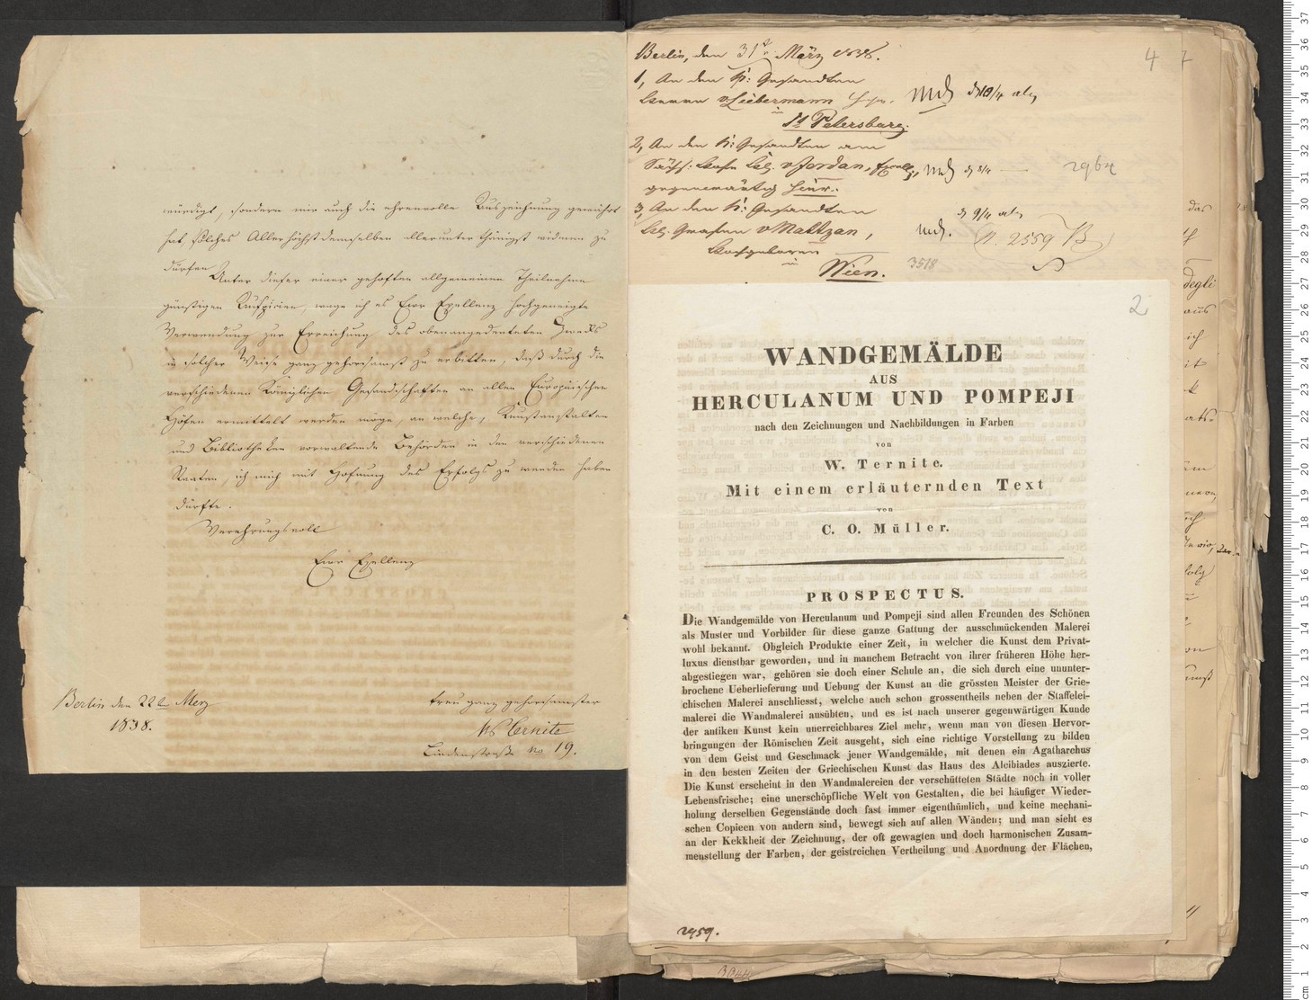 würdigt, sondern mir auch die ehrenvolle Auszeichnung gewährt
hat, solches Allerhöchstdemselben allerunterthänigst widmen zu
dürfen.
Unter dieser einer gehofften allgemeinen Theilnahme
günstigen Auspizien, wage ich es Euer Exellenz hochgeneigte
Verwendung zur Erreichung des obenangedeuteten Zwecks
in solcher Weise ganz gehorsamst zu erbitten, daß durch die
verschiedenen Königlichen Gesandschaften an allen Europäischen
Höfen ermittelt werden möge, an welche, Kunstanstalten
und Bibliotheken vorwaltende Behörden in den verschiedenen
Staaten, ich mich mit Hofnung des Erfolgs zu wenden haben
dürfte.
Verehrungsvoll
Euer Exellenz
Berlin den 22t Merz
1838.
ganz gehorsamster
W Ternite
Lindenstraße No 19.
Berlin, den 31t März 1838.
1, An den K: Gesandten
Herrn v Liebermann
St Petersburg.
2, An den K: Gesandten am
Sächs: Hofe v Jordan,
gegenwärtig hier.
3, An den K: Gesandten
Grafen v Maltzan,
Hochgeboren
Wien.
4 7
2964
2559
3518
2
WANDGEMÄLDE
AUS
HERCULANUM UND POMPEJI
nach den Zeichnungen und Nachbildungen in Farben
von
W. Ternite.
Mit einem erläuternden Text
von
C. O. Müller.
PROSPECTUS.
Die Wandgemälde von Herculanum und Pompeji sind allen Freunden des Schönen
als Muster und Vorbilder für diese ganze Gattung der ausschmückenden Malerei
wohl bekannt. Obgleich Produkte einer Zeit, in welcher die Kunst dem Privat-
luxus dienstbar geworden, und in manchem Betracht von ihrer früheren Höhe her-
abgestiegen war, gehören sie doch einer Schule an, die sich durch eine ununter-
brochene Ueberlieferung und Uebung der Kunst an die grössten Meister der Grie-
chischen Malerei anschliesst, welche auch schon grossentheils neben der Staffelei-
malerei die Wandmalerei ausübten, und es ist nach unserer gegenwärtigen Kunde
der antiken Kunst kein unerreichbares Ziel mehr, wenn man von diesen Hervor-
bringungen der Römischen Zeit ausgeht, sich eine richtige Vorstellung zu bilden
von dem Geist und Geschmack jener Wandgemälde, mit denen ein Agatharchus
in den besten Zeiten der Griechischen Kunst das Haus des Alcibiades auszierte.
Die Kunst erscheint in den Wandmalereien der verschütteten Städte noch in voller
Lebensfrische; eine unerschöpfliche Welt von Gestalten, die bei häufiger Wieder-
holung derselben Gegenstände doch fast immer eigenthümlich, und keine mechani-
schen Copieen von andern sind, bewegt sich auf allen Wänden; und man sieht es
an der Kekkheit der Zeichnung, der oft gewagten und doch harmonischen Zusam-
menstellung der Farben, der geistreichen Vertheilung und Anordnung der Flächen,
2959.